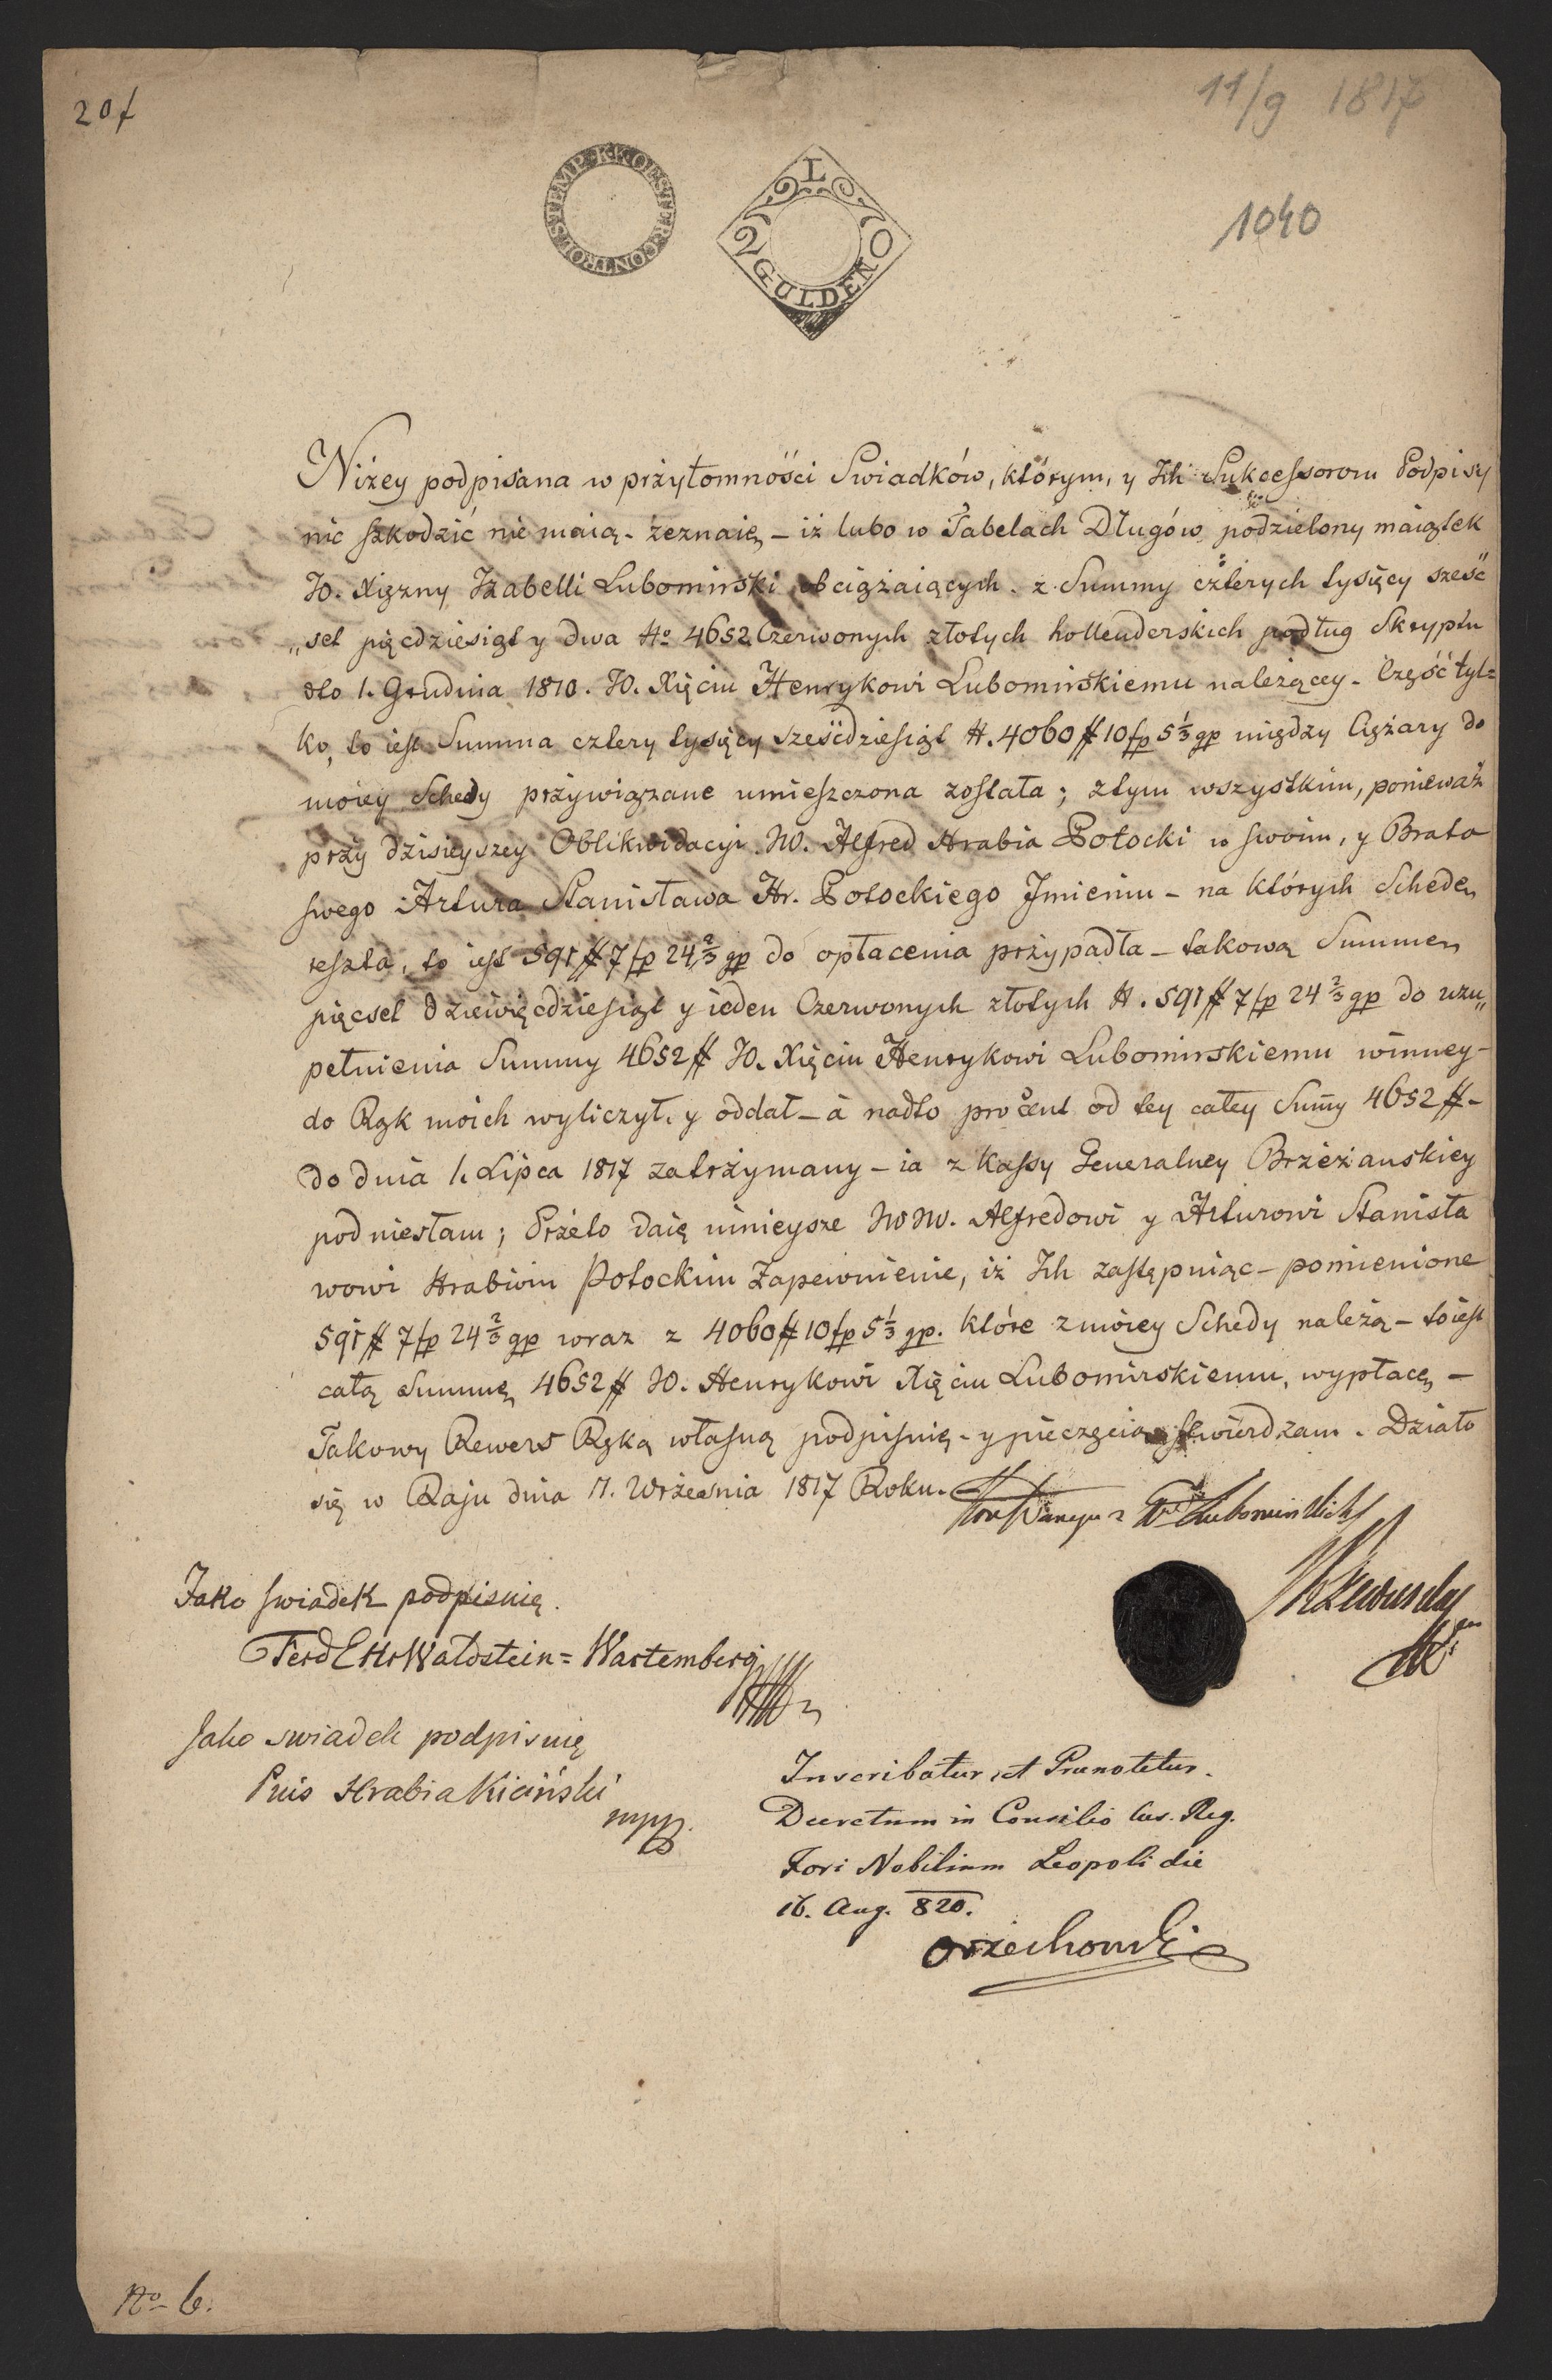 20f
11/9 1817
1040
K. K. OESTER. CONTROL STEMP.
20 L
GULDEN
Niżey podpisana w przytomności Swiadków, którym, y Ich Sukcessorom Podpisy
nic szkodzić nie maią - zeznaię - iż lubo w Tabelach Długów podzielony maiątek
JO. Xiężny Izabelli Lubomirski obciążaiących. z Summy czterych tysięcy sześć
„set pięcdziesiąt y dwa No 4652 Czerwonych złotych hollenderskich podług Skryptu
dto 1. Grudnia 1810. JO. Xięciu Henrykowi Lubomirskiemu należącey - Część tyl=
ko, to iest Summa cztery tysięcy sześćdziesiąt N. 4060 # 10 fp 5 1/3 gp między Ciężary do
moiey Schedy przywiązane umieszczona została; z tym wszystkim, ponieważ
przy dzisieyszey Oblikwidacyi JW. Alfred Hrabia Potocki w swoim, y Brata
swego Artura Stanisława Hr. Potockiego Imieniu - na których Schedę
reszta, to iest 591 # 7 fp 24 2/3 gp do opłacenia przypadła - takową Summę
pięcset dziewięcdziesiąt y ieden Czerwonych złotych N. 591 # 7 fp 24 2/3 gp do uzu„
pełnienia Summy 4652 # JO. Xięciu Henrykowi Lubomirskiemu winney -
do Rąk moich wyliczył, y oddał - à nadto procent od tey całey Sum̃y 4652 # -
do dnia 1. Lipca 1817 zatrzymany - ia z Kassy Generalney Brzeżanskiey
podniesłam; Przeto daię ninieysze JWJW. Alfredowi y Arturowi Stanisła
wowi Hrabiom Potockim Zapewnienie, iż Ich zastępuiąc - pomienione
591 # 7 fp 24 2/3 gp wraz z 4060 # 10 fp 5 1/3 gp. które z moiey Schedy należą - to iest
całą Summę 4652 # JO. Henrykowi Xięciu Lubomirskiemu, wypłacę -
Takowy Rewers Ręką własną podpisuię - y pieczęcią stwierdzam. Działo
się w Raju dnia 11. Września 1817 Roku.
Konstancya z Lubomirskich
Rzewuska
Jako swiadek podpisuię.
Ferd E Hr Waldstein = Wartemberg
Jako swiadek podpisuię
Pius Hrabia Kiciński
mpp.
Inscribatur, et Prænotetur.
Decretum in Consilio Cæs. Reg.
Fori Nobilium Leopoli die
16. Aug. 820.
Orzechowski
No 6.